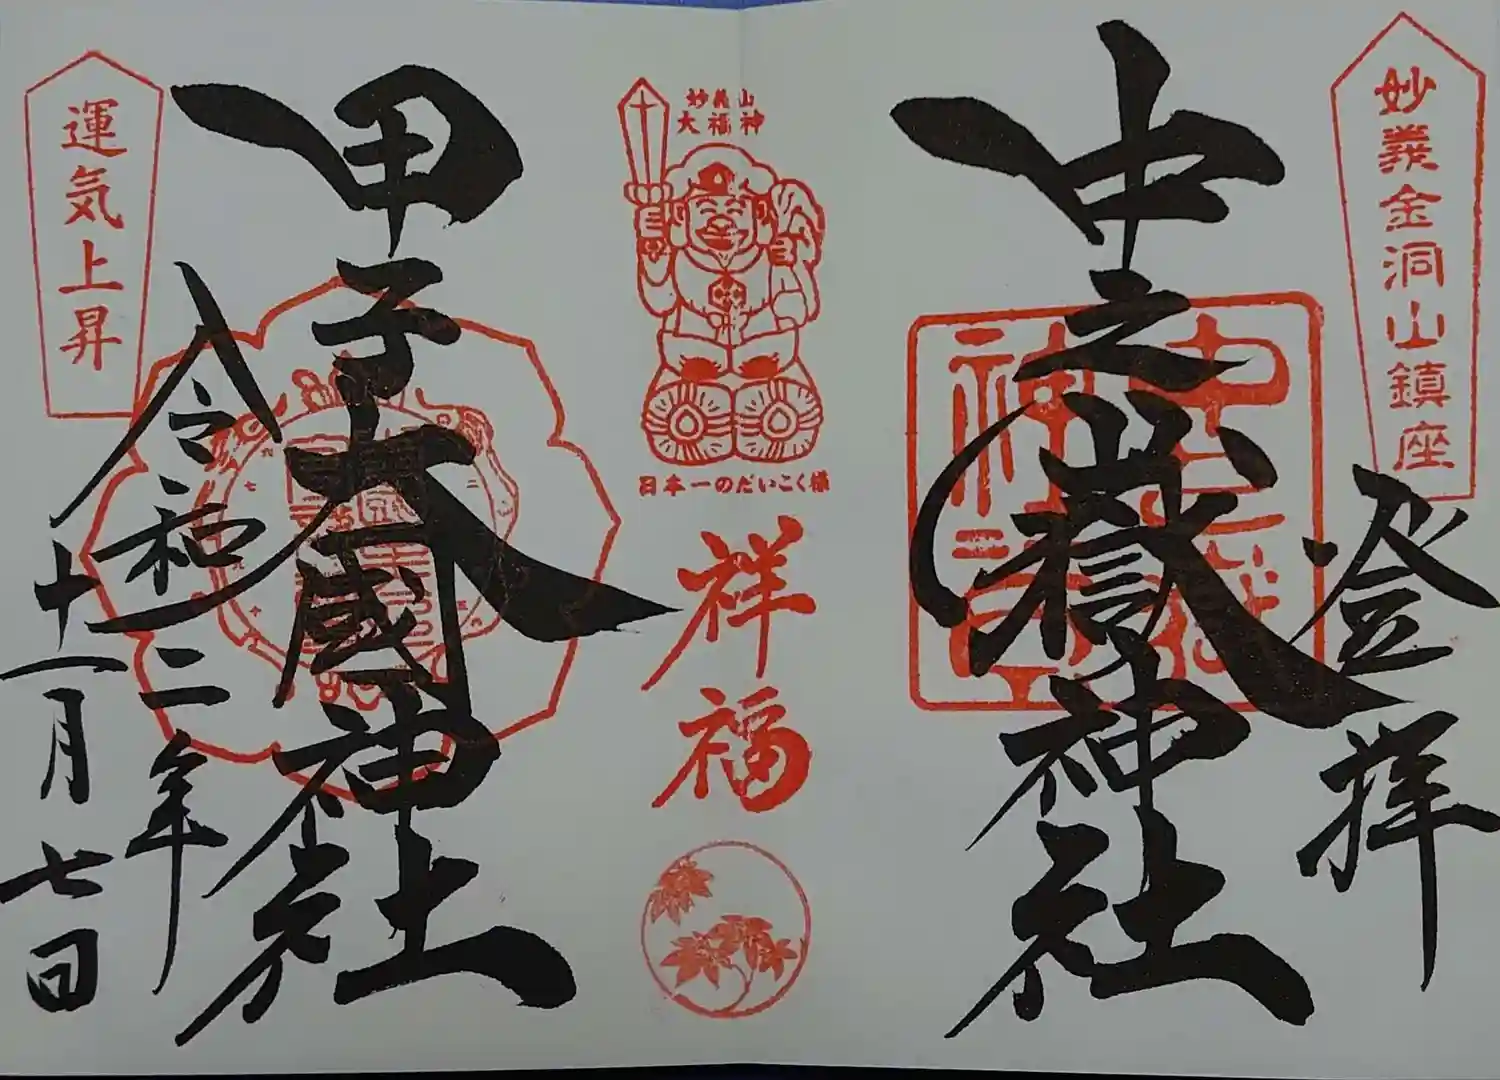 妙義金洞山鎮座
登拝
中之嶽神社
妙義山
大福神
日本一のだいこく様
祥福
甲子大國神社
運気上昇
令和二年
十一月七日